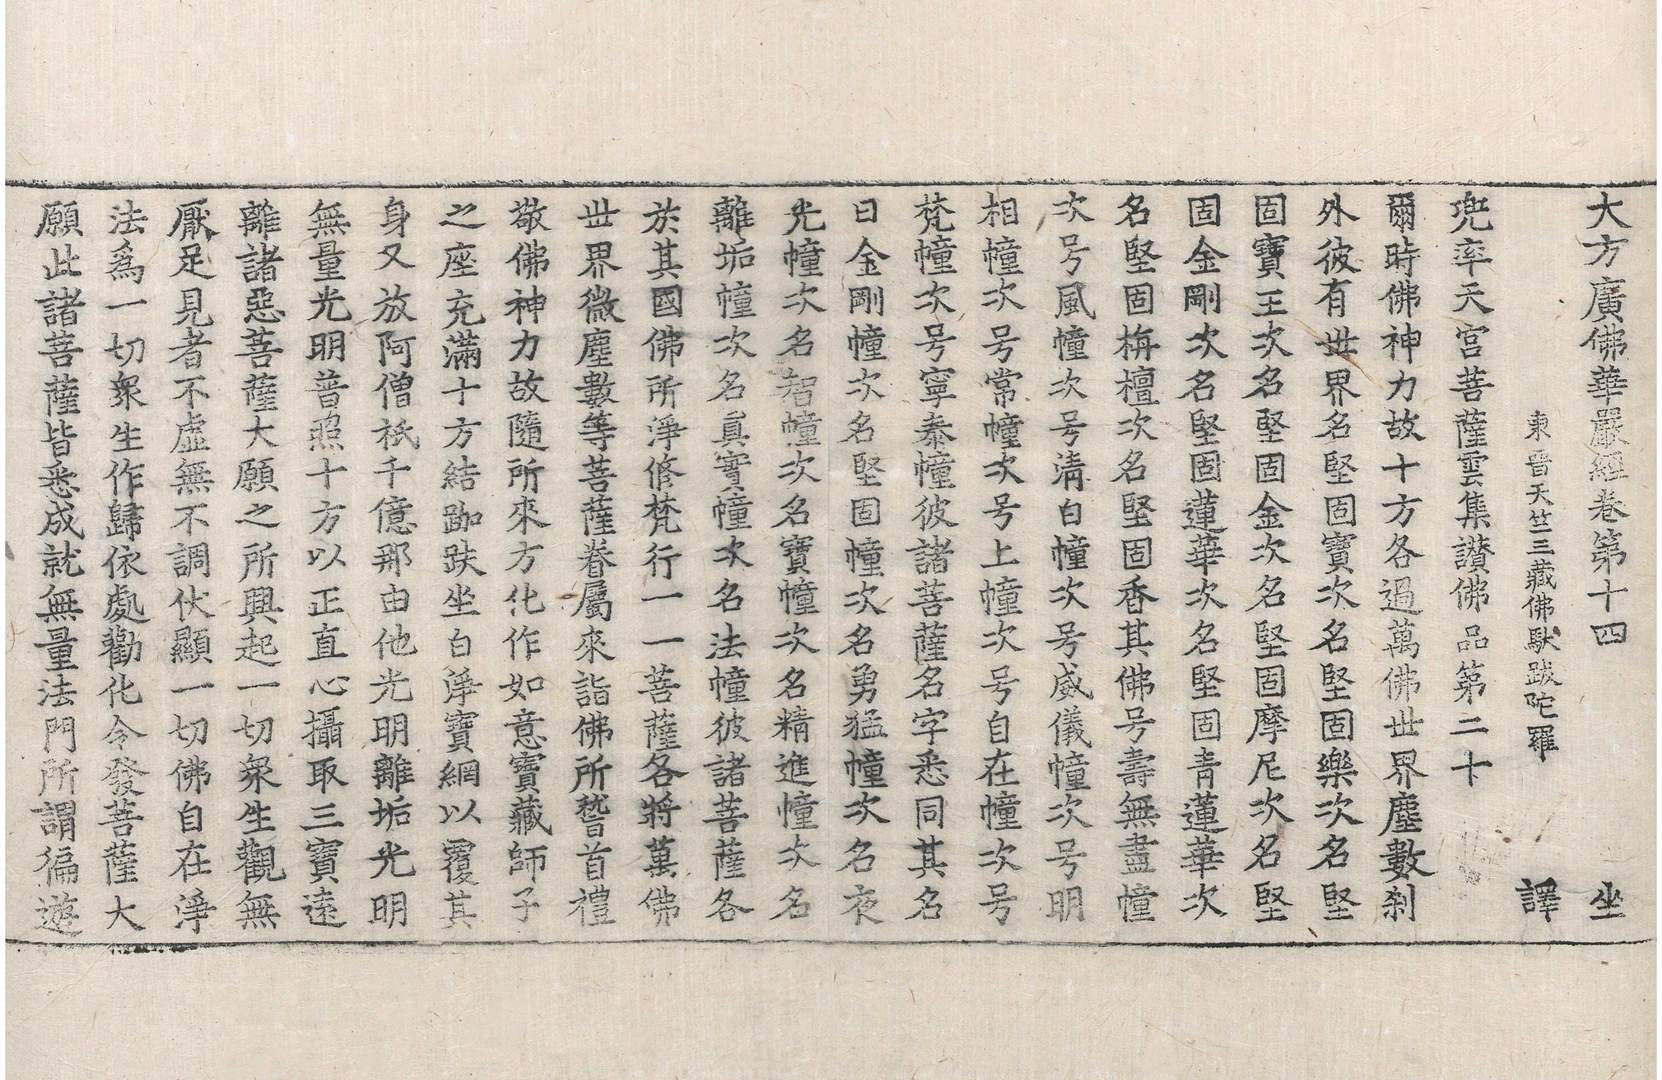 大方廣佛華嚴經卷第十四 坐
東晉天竺三藏佛馱跋陀羅 譯
兜率天宮菩薩雲集讃佛品第二十
爾時佛神力故十方各過萬佛世界塵數刹
外彼有世界名堅固寶次名堅固樂次名堅
固寶王次名堅固金次名堅固摩尼次名堅
固金剛次名堅固蓮華次名堅固青蓮華次
名堅固栴檀次名堅固香其佛号壽無盡幢
次号風幢次号清白幢次号威儀幢次号明
相幢次号常幢次号上幢次号自在幢次号
梵幢次号寧泰幢彼諸菩薩名字悉同其名
曰金剛幢次名堅固幢次名勇猛幢次名夜
光幢次名智幢次名寶幢次名精進幢次名
離垢幢次名眞實幢次名法幢彼諸菩薩各
於其國佛所淨修梵行一一菩薩各將萬佛
世界微塵數等菩薩眷屬來詣佛所䭫首禮
敬佛神力故隨所來方化作如意寶藏師子
之座充滿十方結跏趺坐白淨寶網以覆其
身又放阿僧祇千億那由他光明離垢光明
無量光明普照十方以正直心攝取三寶遠
離諸惡菩薩大願之所興起一切衆生觀無
厭足見者不虛無不調伏顯一切佛自在淨
法爲一切衆生作歸依處勸化令發菩薩大
願此諸菩薩皆悉成就無量法門所謂徧遊